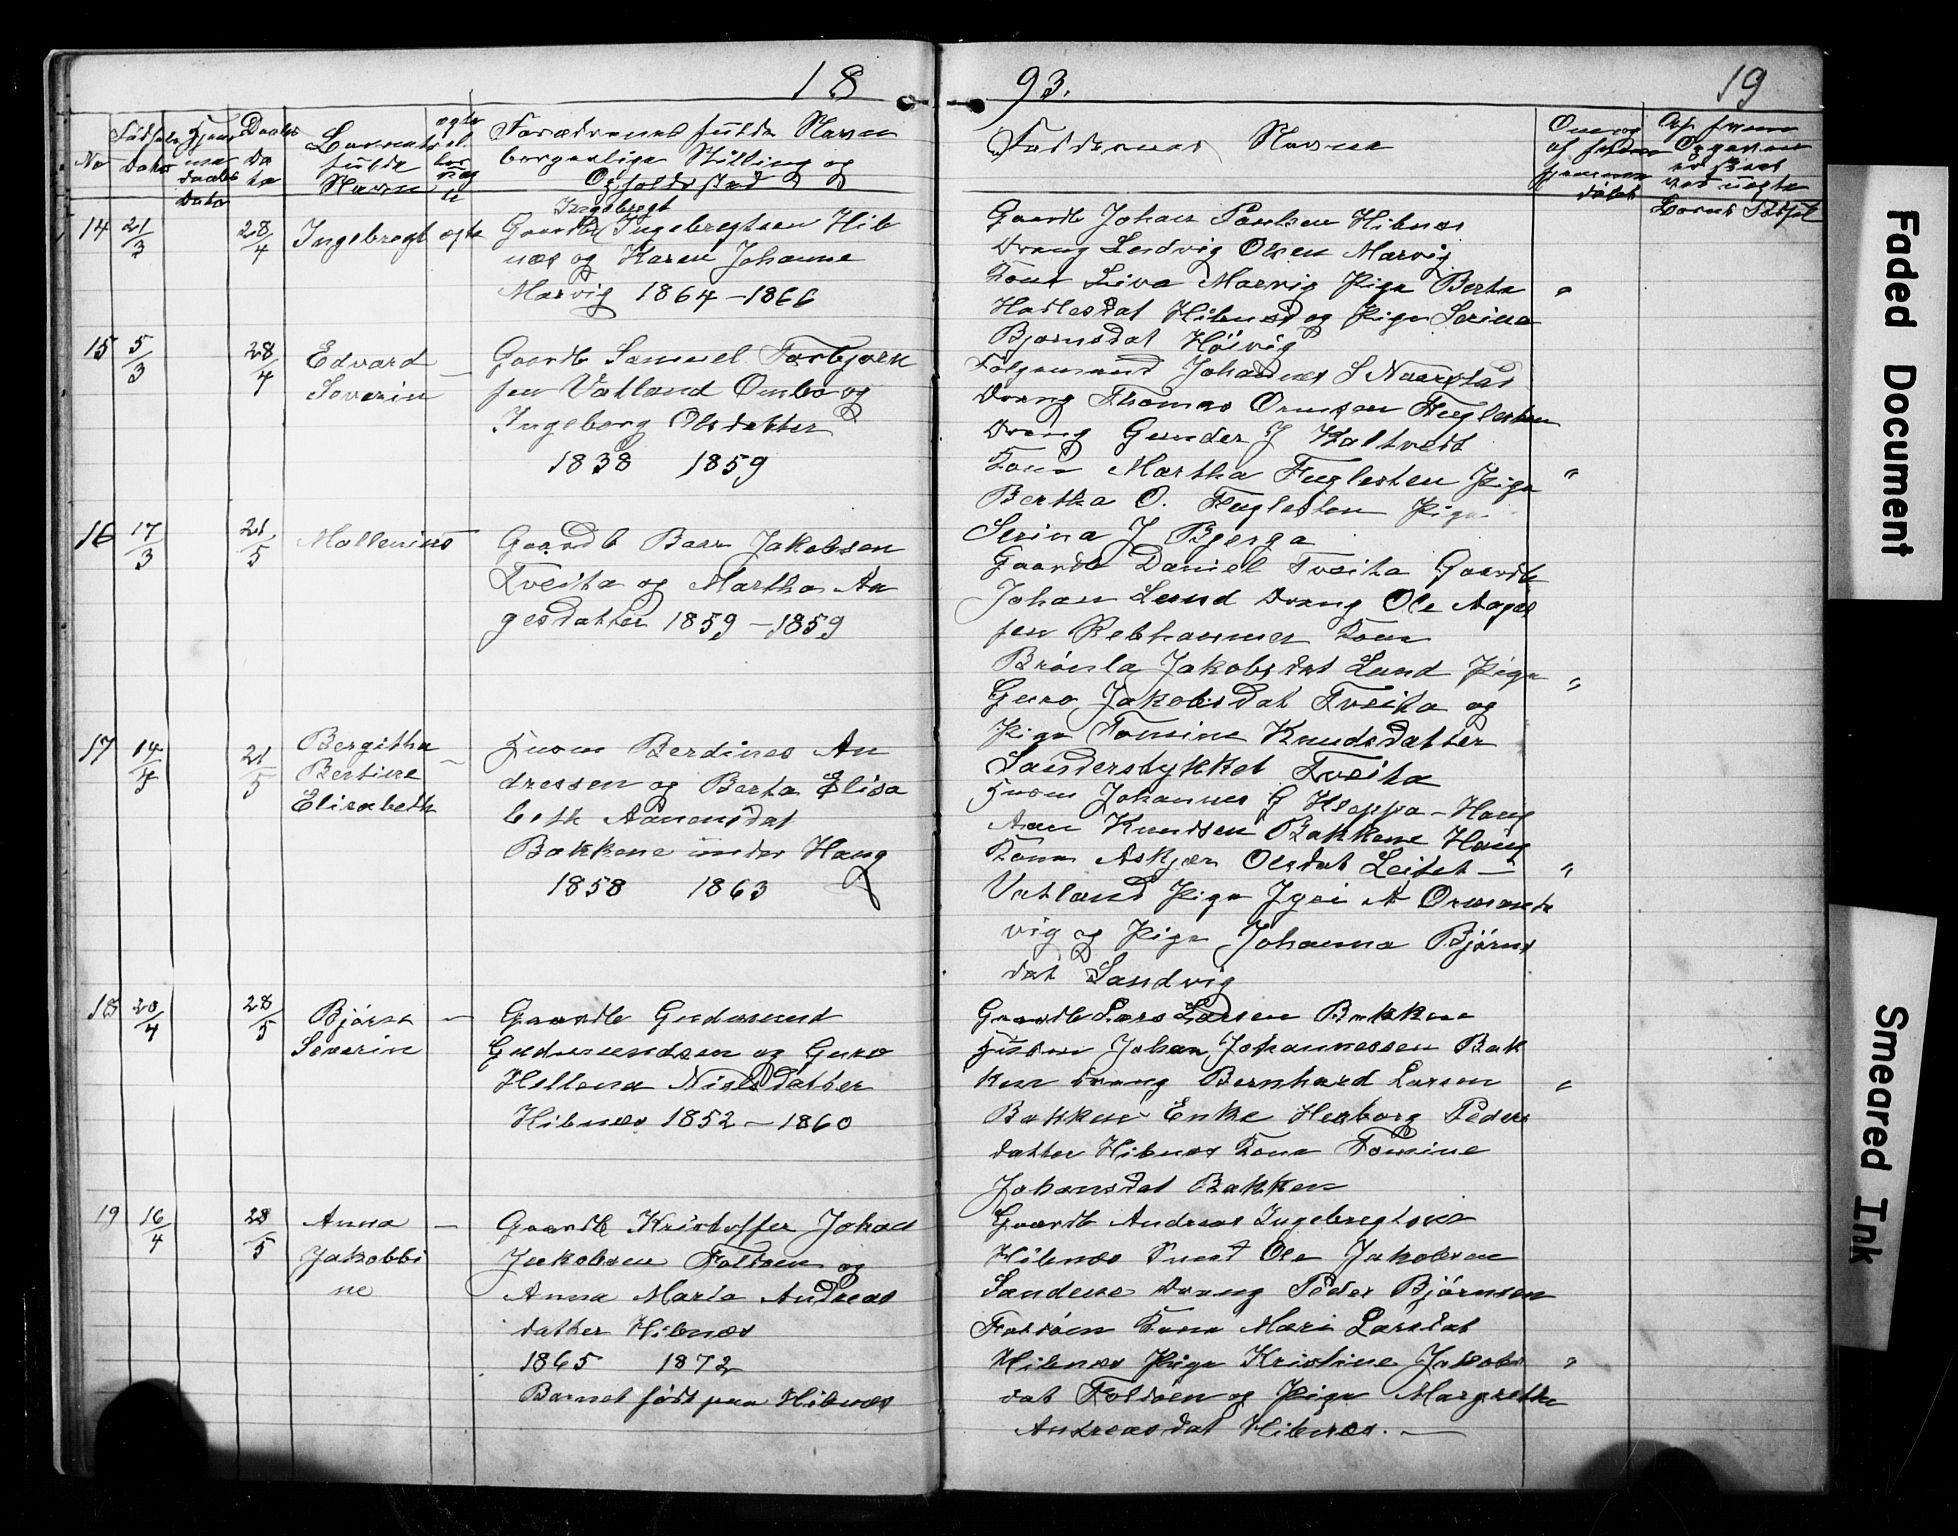 18
93.
19
No
Fødsels
Dato
Hjem
me
daabs
Dato
Daabs
Da
to
Barnets
fulde
Navn
ægte
el.
uæg
te
Forældrenes fulde Navn
borgerlige Stilling og
Opholdssted
Faddernes Navne
14 21/3 28/4 Ingebregt ægte
Ingebregt
Gaardb Ingebregtsen Hib
næs og Karen Johanne
Marvig 1864 - 1866
Gaardb Johan Paulsen Hibnæs
Dreng Ludvig Olsen Marvig
Kone Liva Marvig Pige Berta "
Hibnæs og Pige Serina
Bjørnsdat Høivig
15 5/3 28/4 Edvard
Severin -
Gaardb Samuel Torbjørn
sen Vatland Ombo og
Ingeborg Olsdatter
1838 1859
Johannes S
Dreng Thomas Ormsen Fuglesten
Dreng Gunder J Kaltvedt
Kone Martha Fuglesten Pige "
Bertha O. Fuglesten Pige
Serina J Bjerga
16 17/3 21/5
Gaardb Baar Jakobsen
Tveita og Martha Aa
gesdatter 1859 - 1859
Gaardb Daniel Tveita Gaardb
Johan Lund Dreng Ole Aages
sen Rebhammer Kone
Jakobsdat Lund Pige "
Guro Jakobsdat Tveita og
Pige Tomine Knudsdatter
Sanderstykket Tveita
17 14/4 21/5 Bergitha
Bertine
Elisabeth -
Husm Berdines An
dressen og Berta Elisa
beth Adnensdat
Bakkene under Haug
1858 1863
Husm Johannes G Kleppa - Haug
Knudsen Bakkene Haug
Kone Askjær Olsdat Leitet - "
Vatland Pige A
vig og Pige Johanna Bjørns
dat Sandvig
18 20/4 28/5 Bjørn
Severin -
Gaardb Gudmund
Gudmundsen og Guro
Hellena Nielsdatter
Hibnæs 1852 - 1860
Gaardb Lars Larsen Bakken
Johan Johannessen Bak
ken Dreng Bernhard Larsen "
Bakken Enke Herborg Peders
datter Hibnæs Kone Tomine
Johansdat Bakken
19 16/4 28/5 Anna
Jakobbi
ne -
Gaardb Kristoffer Johan
Jakobsen Foldøen og
Anna Maria Andreas
datter Hibnæs
1865 1872
Barnet født paa Hibnæs
Gaardb Andreas Ingebregtsen
Hibnæs Ole Jakobsen
Sandene Dreng Peder Bjørnsen
Foldøen Kone Mari Larsdat
Hibnæs Pige Kristine Jakobs "
dat Foldøen og Pige Margrethe
Andreasdat Hibnæs. -
Faded Document
Smeared Ink